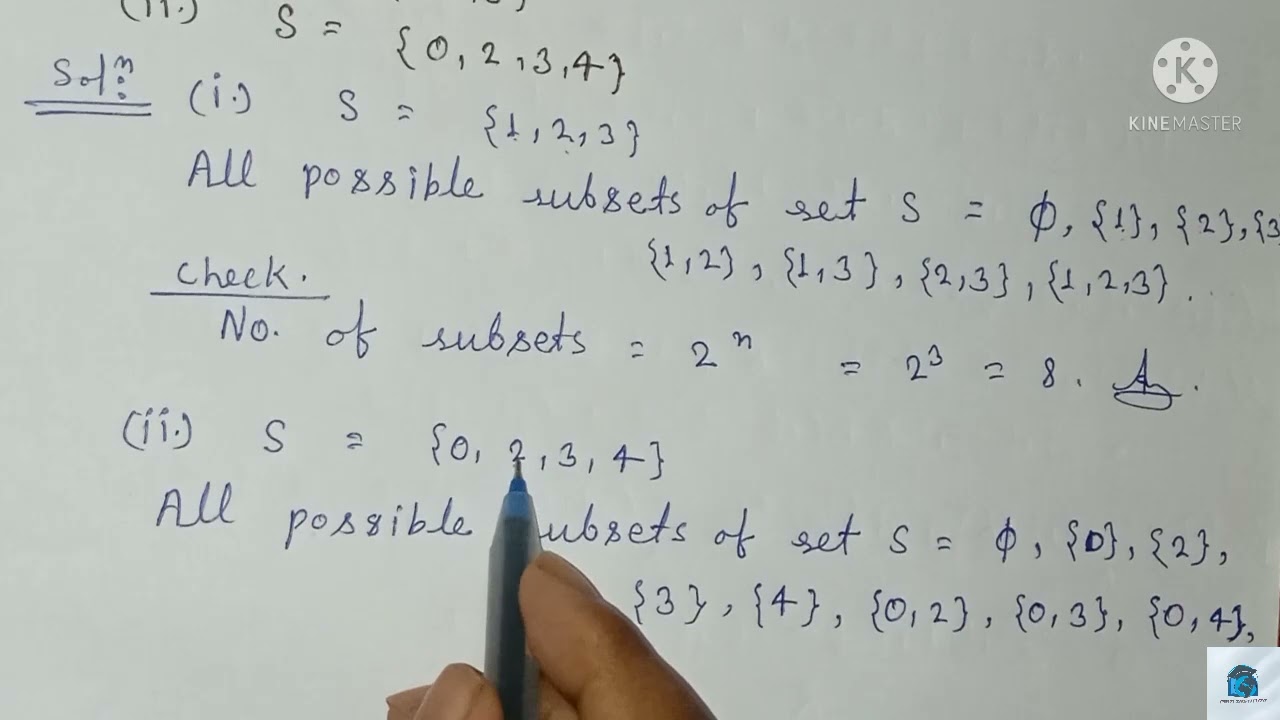 (ii.) S = {0, 2, 3, 4}
Solⁿ: (i.) S = {1, 2, 3}
All possible subsets of set S = ϕ, {1}, {2}, {3
{1, 2}, {1, 3}, {2, 3}, {1, 2, 3}.
Check.
No. of subsets = 2ⁿ = 2³ = 8.
(ii.) S = {0, 2, 3, 4}
All possible subsets of set S = ϕ, {0}, {2},
{3}, {4}, {0, 2}, {0, 3}, {0, 4},
K
KINEMASTER